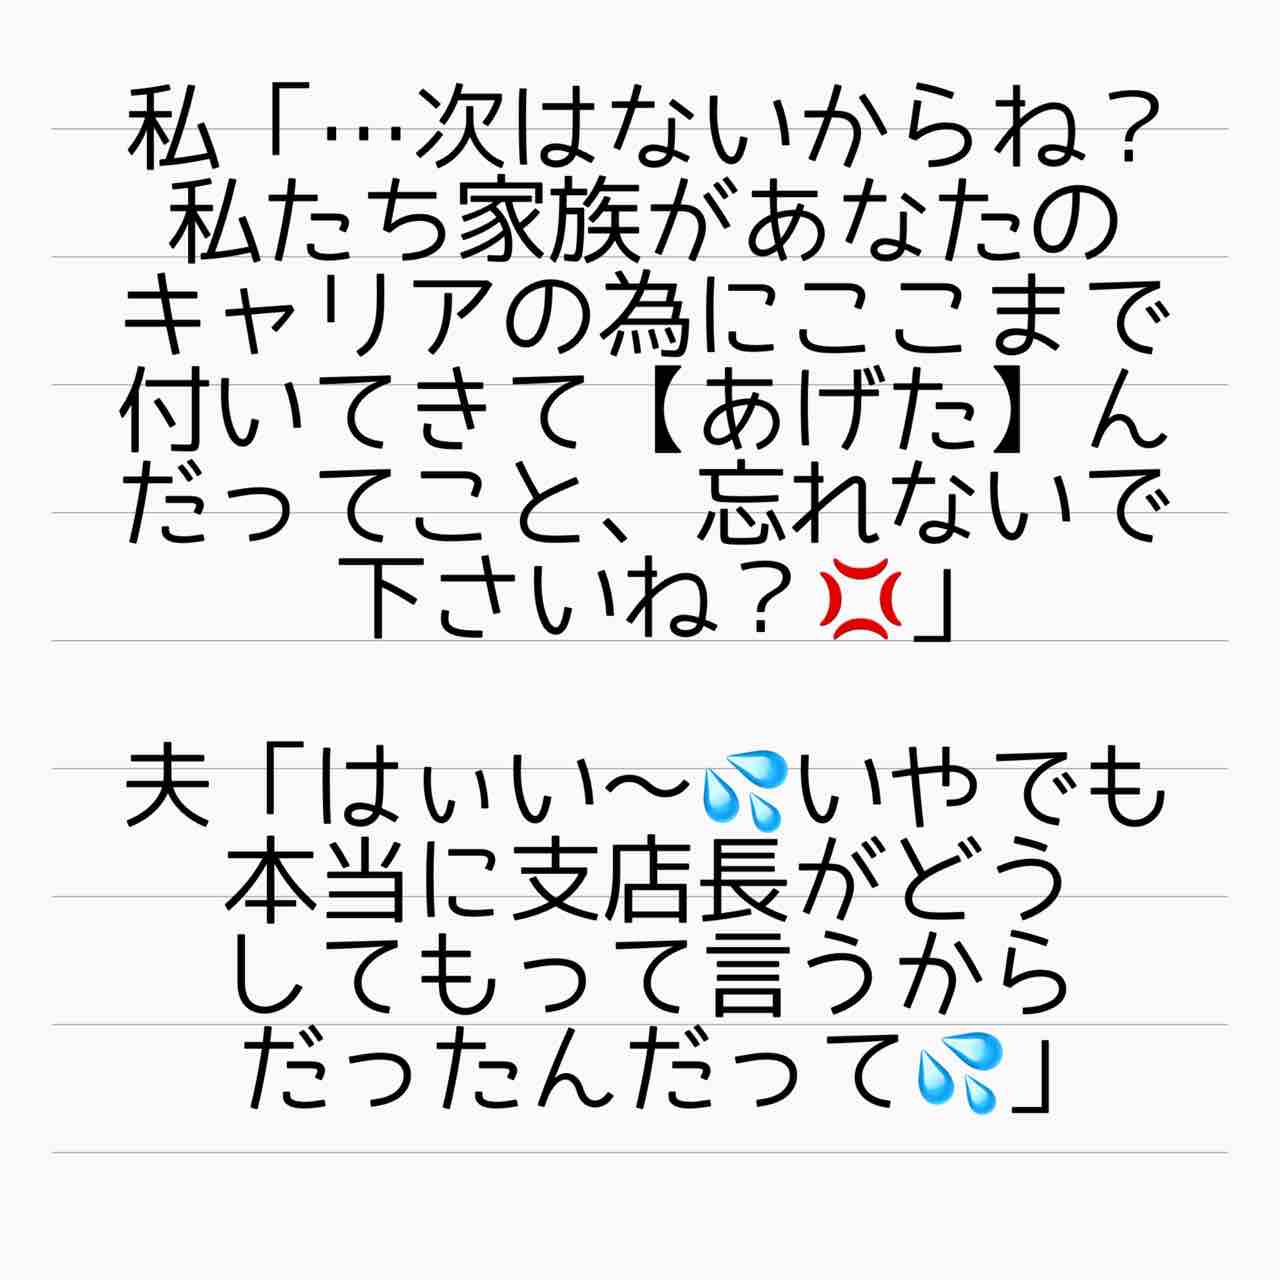 私「…次はないからね？
私たち家族があなたの
キャリアの為にここまで
付いてきて【あげた】ん
だってこと、忘れないで
下さいね？💢」
夫「はぃい〜💦いやでも
本当に支店長がどう
してもって言うから
だったんだって💦」